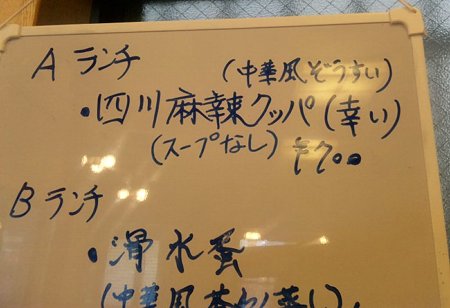 A ランチ
(中華風ぞうすい)
・四川麻辣クッパ(幸い)
(スープなし) ¥700
B ランチ
・滑水蛋
(中華風茶わん蒸し)